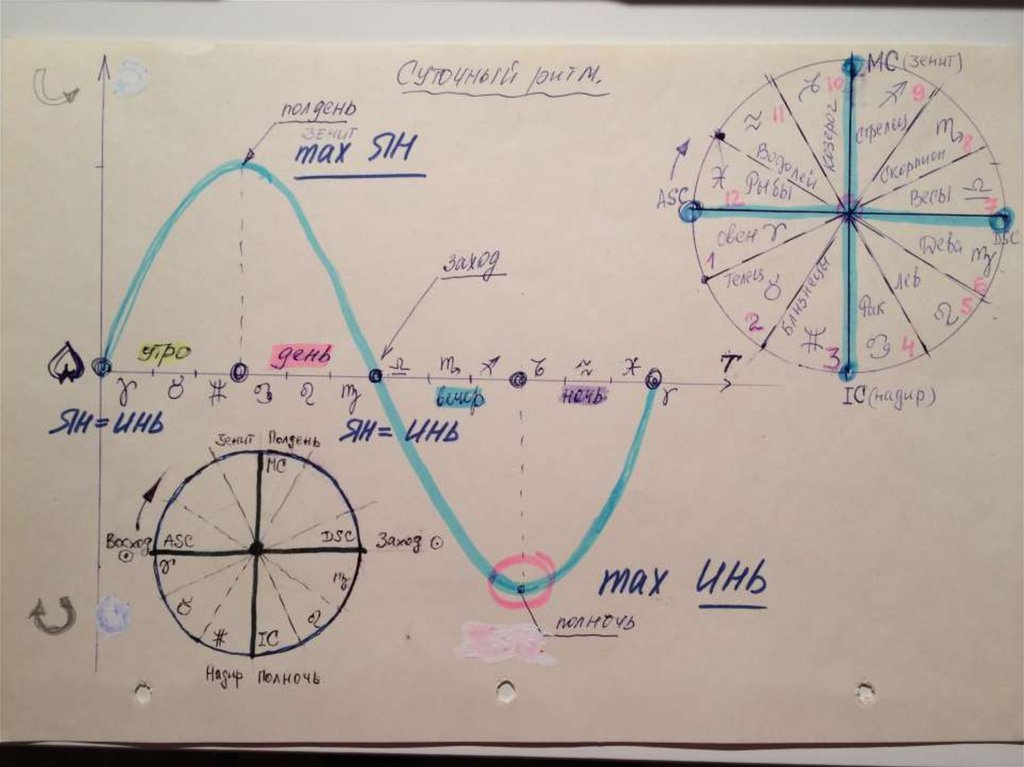 Суточный ритм.
полдень
ЗЕНИТ
max ЯН
заход
утро
день
♈ ♉ ♊ ♋ ♌ ♍ ♎ ♏ ♐ ♑ ♒ ♓ ♈
T
вечер
ночь
ЯН = ИНЬ
ЯН = ИНЬ
max ИНЬ
полночь
MC (зенит)
ASC
DSC
IC (надир)
10 ♑ Козерог
9 ♐ Стрелец
11 ♒ Водолей
8 ♏ Скорпион
12 ♓ Рыбы
7 ♎ Весы
1 Овен ♈
6 Дева ♍
2 Телец ♉
5 Лев ♌
3 Близнецы ♊
4 Рак ♋
Зенит Полдень
MC
Восход ASC
DSC Заход
♈ ♉ ♊ ♌ ♍
IC
Надир Полночь